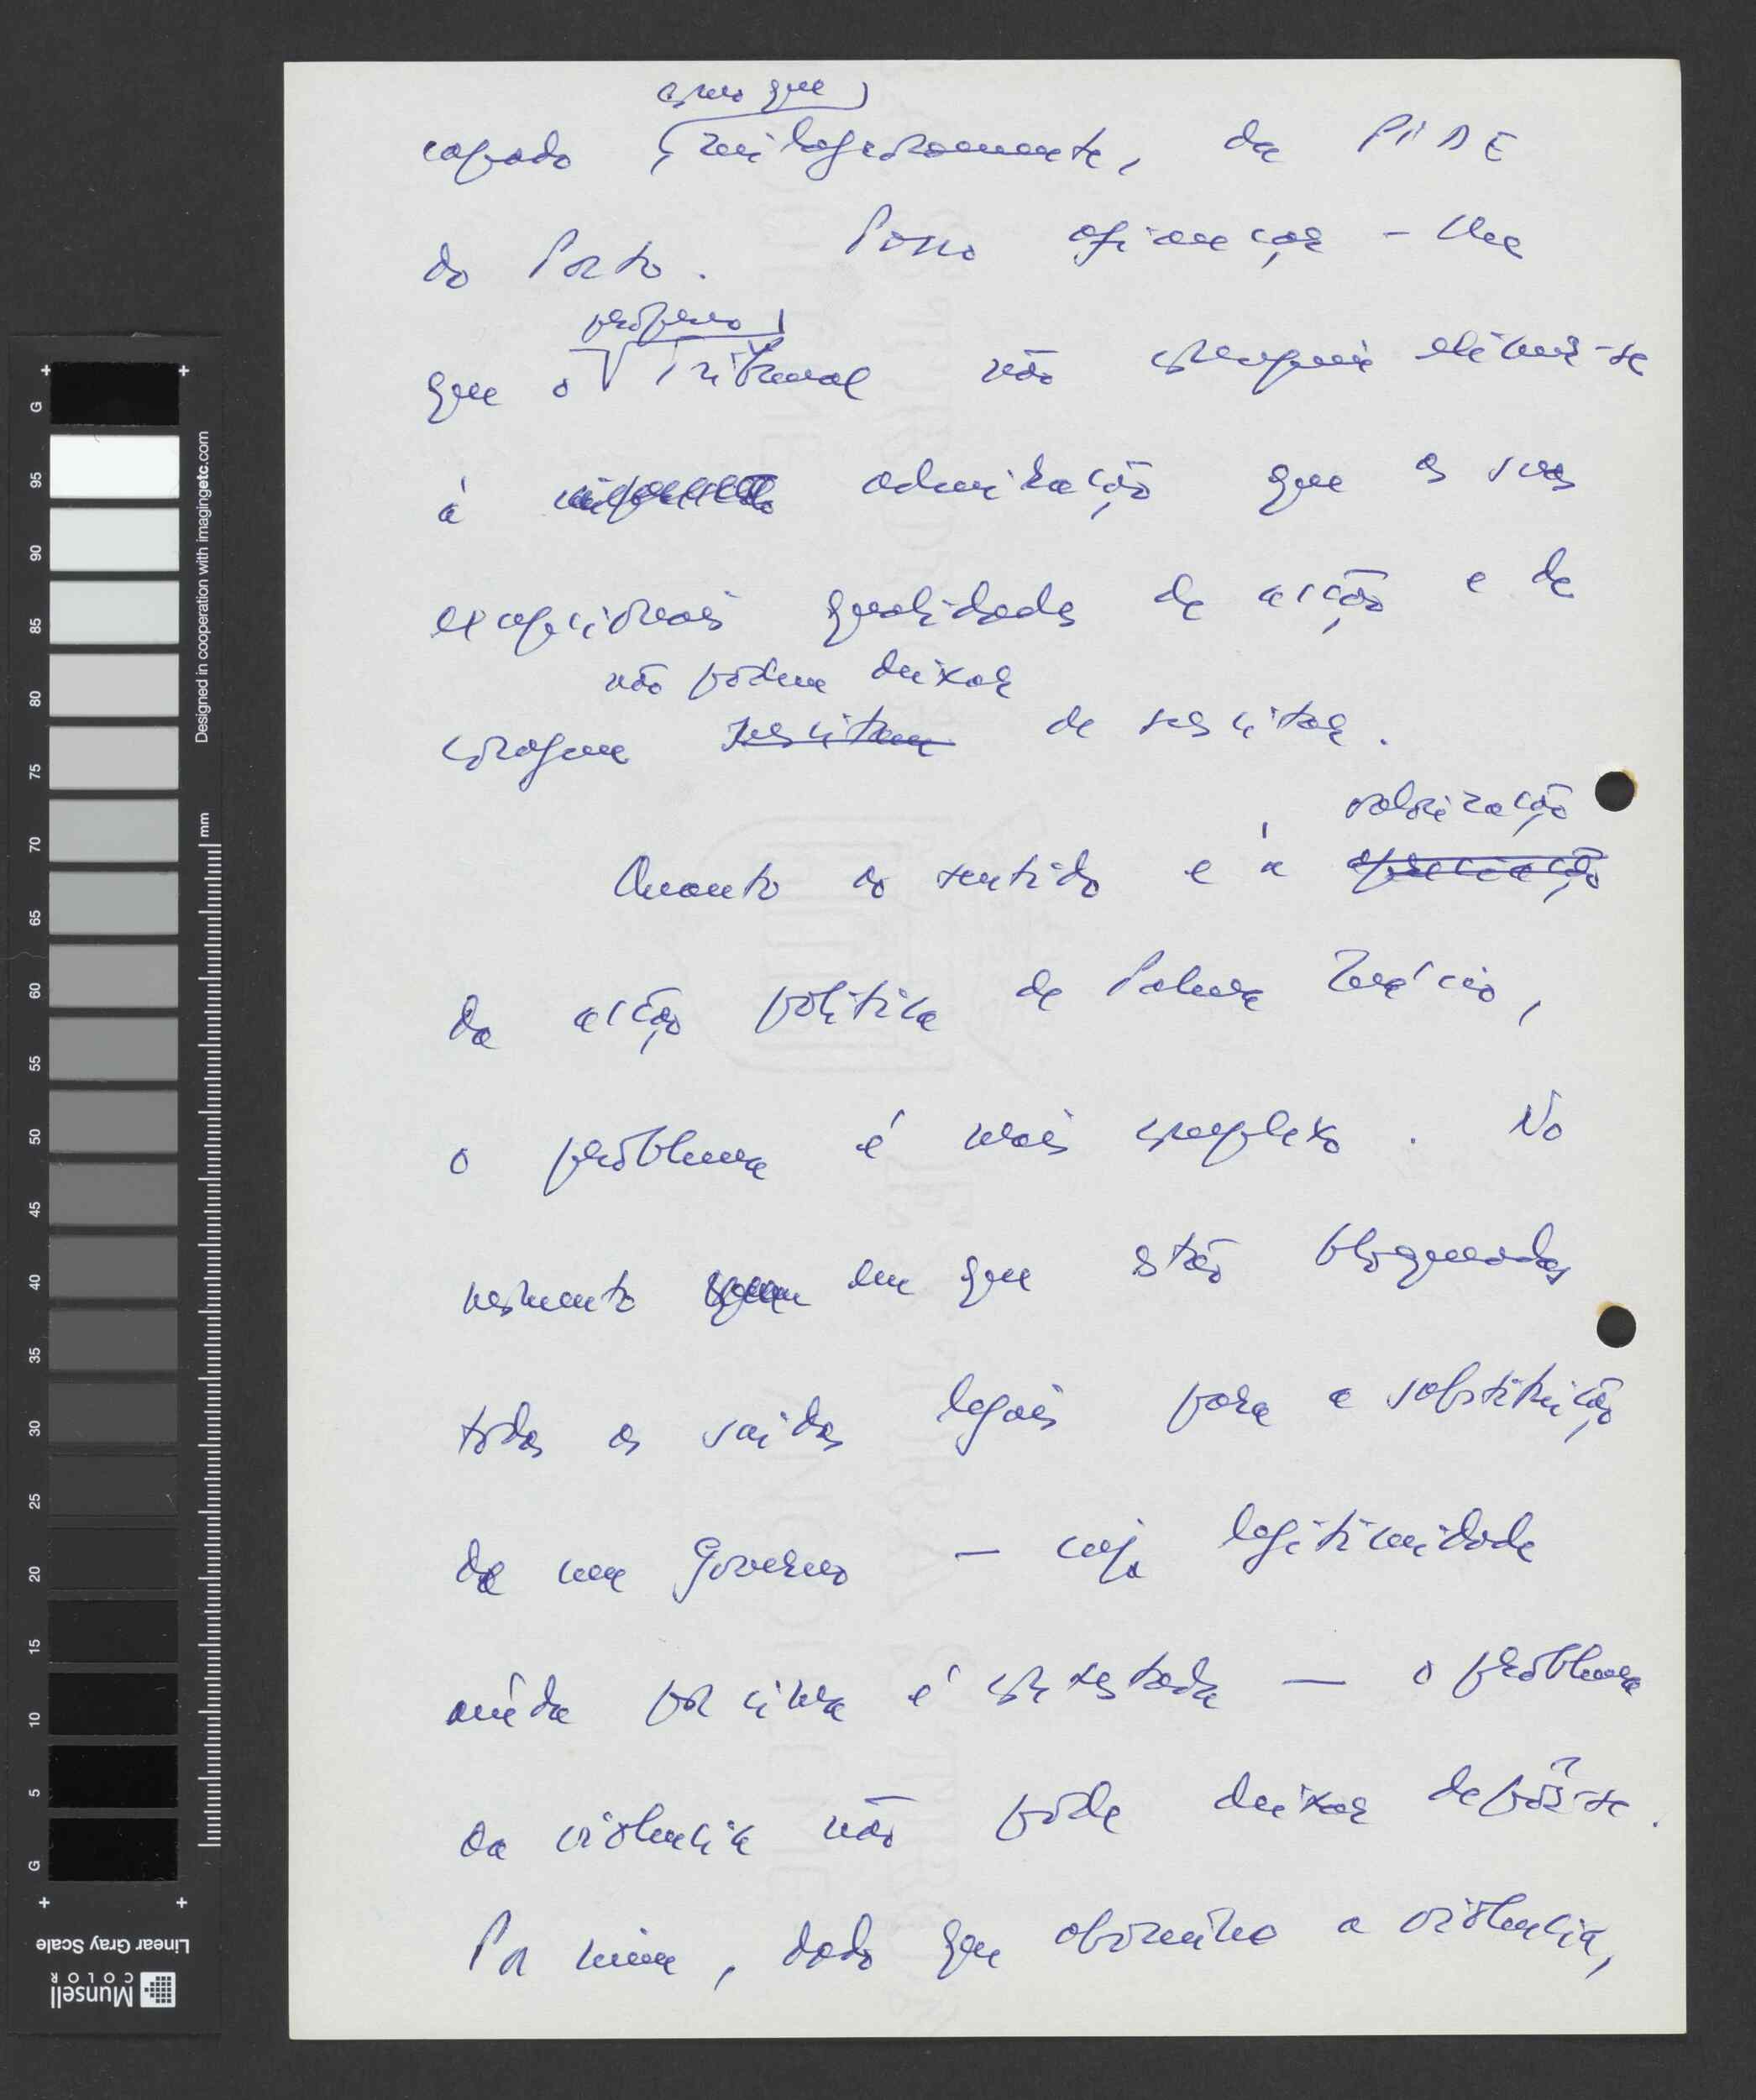 como que
capado, milagrosamente, da PIDE
do Porto. Posso afiançar-lhe
próprio
que o Tribunal não conseguiu eximir-se
à admiração que as suas
excepcionais qualidades de acção e de
não podem deixar
coragem suscitam de suscitar.
valorização
Quanto ao sentido e à apreciação
da acção política de Palma Inácio,
o problema é mais complexo. No
momento em que estão bloqueadas
todas as saídas legais para a substituição
de um Governo – cuja legitimidade
ainda por cima é contestada – o problema
da violência não pode deixar de pôr-se.
Por mim, dado que abomino a violência,
G
95
90
85
80
75
70
65
60
55
50
45
40
35
30
25
20
15
10
5
G
Designed in cooperation with imagingetc.com
mm
Linear Gray Scale
Munsell
COLOR